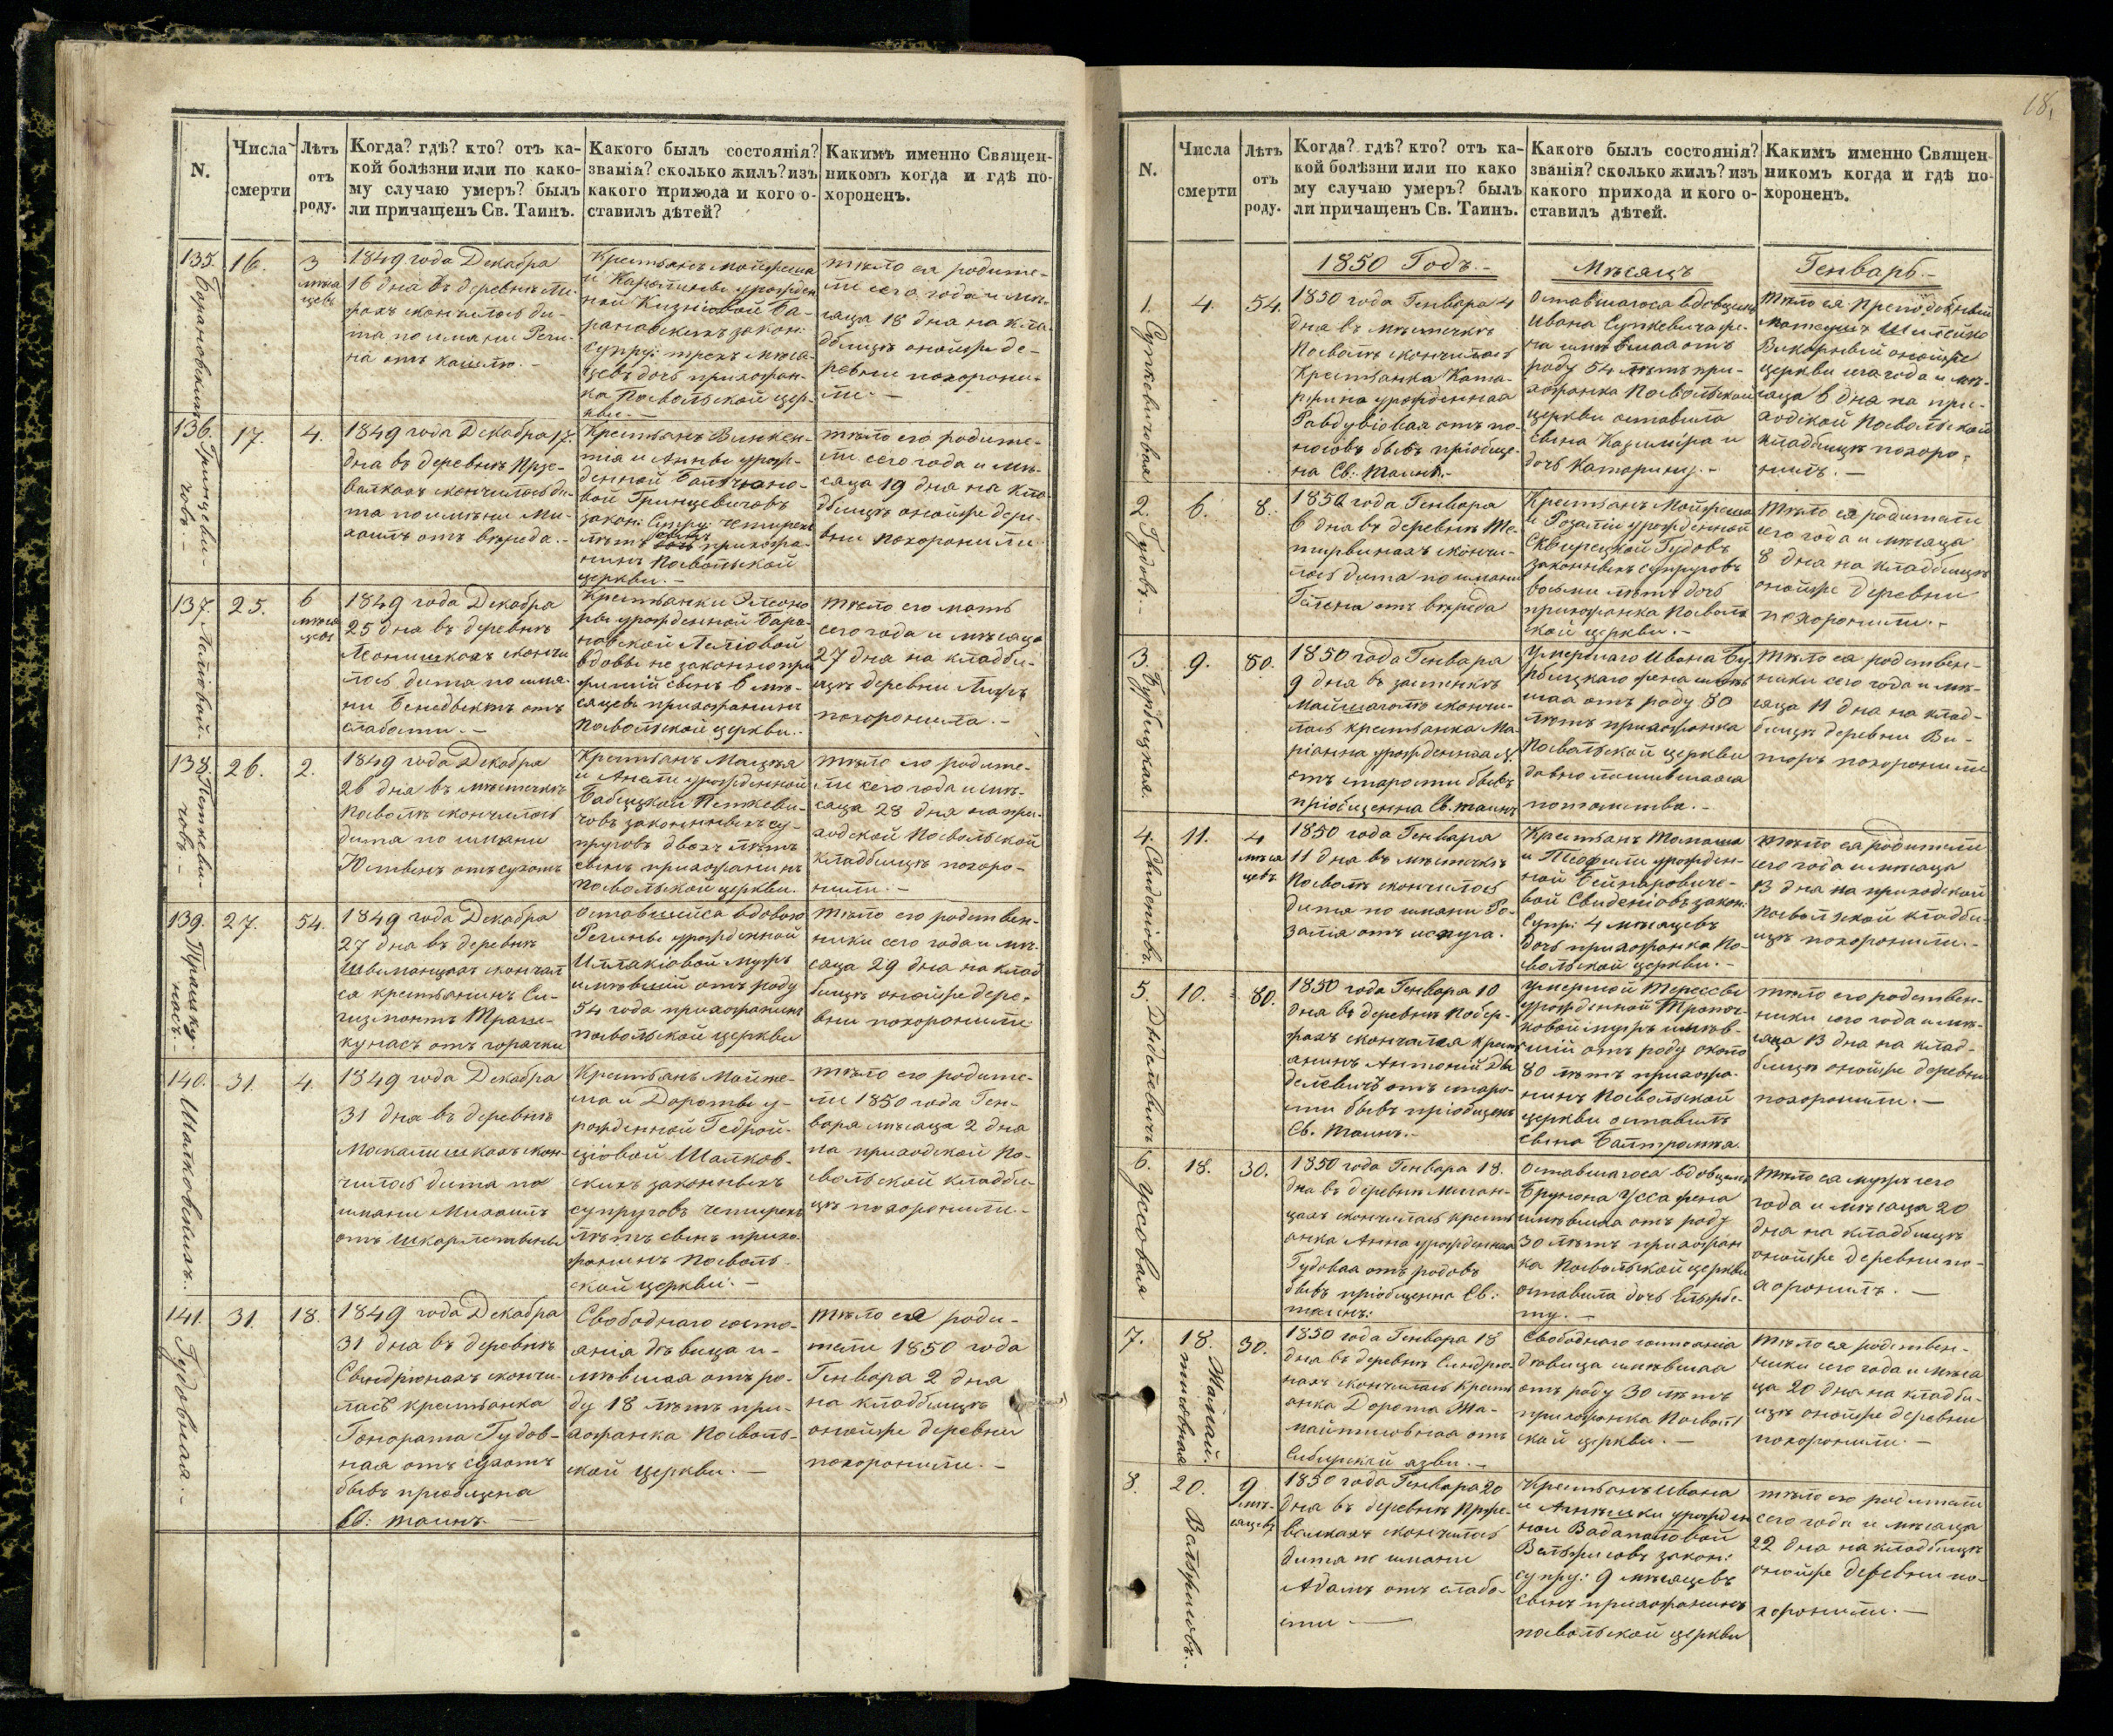 N.
Числа смерти
Лѣтъ отъ роду.
Когда? гдѣ? кто? отъ ка-
кой болѣзни или по како-
му случаю умеръ? былъ
ли причащенъ Св. Таинъ.
Какого былъ состоянія?
званія? сколько жилъ? изъ
какого прихода и кого о-
ставилъ дѣтей?
Какимъ именно Священ-
никомъ когда и гдѣ по-
хороненъ.
135.
16.
3
мѣся
цевъ
1849 года Декабра
16 дна въ деревнѣ
скончилось ди-
та по имани Реги-
на отъ кашлю.-
Крестьянъ Мойжеша
и Каролины урожден
ной
рановскихъ закон:
супру: трехъ мѣся-
цевъ дочь прихожан-
ка Посвольской цер-
кви.-
тѣло ея родите-
ли сего года и мѣ-
саца 18 дна на кла-
дбищѣ онойже де-
ревни похорони-
ли.-
136.
Гринцеви-
човъ.-
17.
4.
1849 года Декабра 17.
дна въ деревнѣ
скончилось ди-
та по имѣни Ми-
хаилъ отъ вереда.-
Крестьянъ Викен-
тія и Анны урож-
денной
вой Гринцевичовъ
закон: Супру: четырехъ
лѣтъ сынъ прихожа-
нинъ Посвольской
церкви.-
тѣло его родите-
ли сего года и мѣ-
саца 19 дна на кла-
дбищѣ онойже дере-
вни похоронили.
137.
25.
6
мѣся
цевъ
1849 года Декабра
25 дна въ деревнѣ
скончи
лось дита по има-
ни Бенедыктъ отъ
слабости.-
Крестьянки Элеоно
ры урожденной Бара-
новской
вдовы не законно при
житый сынъ 6 мѣ-
сяцевъ прихожанинъ
Посвольской церкви.-
тѣло его мать
сего года и мѣсяца
27 дна на кладби-
щѣ деревни
похоронила.-
138.
Петкеви-
човъ.-
26.
2.
1849 года Декабра
26 дна въ мѣстечкѣ
Посволѣ скончилось
дита по имѣни
Юстынъ отъ сухотъ
Крестьянъ Мацѣя
и Анели урожденной
Бабицкой Петкеви-
човъ законныхъ су-
пруговъ двохъ лѣтъ
сынъ прихожанинъ
посвольской церкви.
тѣло его родите-
ли сего года и мѣ-
саца 28 дня на при-
ходской Посвольской
кладбищѣ похоро-
нили.-
139.
Трашку-
насъ.-
27.
54.
1849 года Декабра
27 дна въ деревнѣ
скончал
ся крестьянинъ Си-
гизмонтъ Траш-
кунасъ отъ горачки
оставшийся вдовою
Регины урожденной
мужъ
имѣвшій отъ роду
54 года прихожанинъ
посвольской церкви
тѣло его родствен-
ники сего года и мѣ-
саца 29 дна на клад
бищѣ онойже дере-
вни похоронили
140.
Шалковскихъ.-
31.
4.
1849 года Декабра
31 дна въ деревнѣ
Маскалишкахъ скон-
чилось дита по
имани Михаилъ
отъ шкарлятыны
Крестьянъ Мойже-
ша и Дороты у-
рожденной Гедрой-
ціовой Шалков-
скихъ законныхъ
супруговъ четырехъ
лѣтъ сынъ прихо-
жанинъ Посволь-
ской церкви.-
тѣло его родите-
ли 1850 года Ген-
вара мѣсаца 2 дна
на приходской По-
свольской кладби-
щѣ похоронили.-
141.
31.
18.
1849 года Декабра
31 дна въ деревнѣ
скончи-
лась крестьянка
Гонората Гудов-
ная отъ сухотъ
бывъ пріобщена
Св: таинъ.-
Свободнаго состо-
янія дѣвица и-
мѣвшая отъ ро-
ду 18 лѣтъ при-
хожанка Посволь-
ской церкви.-
тѣло ея роди-
тели 1850 года
Генвара 2 дна
на кладбищѣ
онойже деревни
похоронили.-
18.
N.
Числа смерти
Лѣтъ отъ роду.
Когда? гдѣ? кто? отъ ка-
кой болѣзни или по како
му случаю умеръ? былъ
ли причащенъ Св. Таинъ.
Какого былъ состоянія?
званія? сколько жилъ? изъ
какого прихода и кого о-
ставилъ дѣтей.
Какимъ именно Священ-
никомъ когда и гдѣ по-
хороненъ.
1850 Годъ.-
Мѣсяцъ
Генварь.-
1.
Суткевичовая
4.
54.
1850 года Генвара 4
дна въ мѣстечкѣ
Посволѣ скончилась
Крестьянка Ката-
рина урожденная
отъ по-
носовъ бывъ пріобще-
на Св: Таинъ.-
Оставшагося вдовцемъ
Ивана Суткевича же-
на имѣвшая отъ
роду 54 лѣтъ при-
хожанка Посвольской
церкви оставила
сына Казимира и
дочь Катарину.-
Тѣло ея Преподобный
Матеушъ
Викарный онойже
церкви сего года и мѣ-
сяца 6 дна на при-
ходской Посвольской
кладбищѣ похоро-
нилъ.-
2.
Гудовъ.-
6.
8.
1850 года Генвара
6 дна въ деревнѣ
скончи-
лось дита по имани
Гелена отъ вереда
Крестьянъ Мойжеша
и Розаліи урожденной
Гудовъ
законныхъ супруговъ
восьми лѣтъ дочь
прихожанка Посволь
ской церкви.-
Тѣло ея родители
сего года и мѣсяца
8 дна на кладбищѣ
онойже деревни
похоронили.-
3.
9.
80.
1850 года Генвара
9 дна въ застенкѣ
скончи-
лась крестьянка Ма
ріанна урожденная
отъ старости бывъ
пріобщенна Св. таинъ
Умершаго Ивана
жена имѣв
шая отъ роду 80
лѣтъ прихожанка
Посвольской церкви
потомства.-
Тѣло ея родствен-
ники сего года и мѣ-
сяца 11 дна на клад-
бищѣ деревни
похоронили
4.
Свиденіовъ.
11.
4
мѣся
цевъ
1850 года Генвара
11 дна въ мѣстечкѣ
Посволѣ скончилось
дита по имани Ро-
залія отъ испуга.
Крестьянъ Томаша
и Теофили урожден-
ной Бейнаровиче-
вой Свиденіовъ закон:
Супр: 4 мѣсяцевъ
дочь прихожанка По-
свольской церкви.-
тѣло ея родители
сего года и мѣсаца
13 дна на приходской
Посвольской кладби-
щѣ похоронили.-
5.
10.
80.
1850 года Генвара 10
дна въ деревнѣ
скончался крестъ
анинъ Антоній
отъ старо-
сти бывъ пріобщенъ
Св. Таинъ.-
умершой Терессы
урожденной
мужъ имѣв-
шій отъ роду около
80 лѣтъ прихожа-
нинъ Посвольской
церкви оставилъ
сына
тѣло его родствен-
ники сего года и мѣ-
сяца 13 дна на клад-
бищѣ онойже деревни
похоронили.-
6.
Уссовая
18.
30.
1850 года Генвара 18.
дна въ деревнѣ
скончилась крестъ
анка Анна урожденная
Гудовая отъ родовъ
бывъ пріобщенна Св:
таинъ:
Оставшагося вдовцемъ
Брунона Усса жена
имѣвшая отъ роду
30 лѣтъ прихожан
ка Посвольской церкви
оставила дочь Ельжбе-
ту.-
Тѣло ея мужъ сего
года и мѣсяца 20
дна на кладбищѣ
онойже деревни по-
хоронилъ.-
7.
18.
30.
1850 года Генвара 18
дна въ деревнѣ
скончилась крестъ
анка Дорота
отъ
Сибирской язвы.-
Свободнаго состоянія
дѣвица имѣвшая
отъ роду 30 лѣтъ
прихожанка Посволь
ской церкви.-
Тѣло ея родствен-
ники сего года и мѣся
ца 20 дна на кладби-
щѣ онойже деревни
похоронили.-
8.
20.
9
мѣ-
сяцевъ
1850 года Генвара 20
дна въ деревнѣ
скончилось
дита по имани
Адамъ отъ слабо-
сти-
Крестьянъ Ивана
и Агнѣшки урожден
ной
закон:
супру: 9 мѣсяцевъ
сынъ прихожанинъ
посвольской церкви
тѣло его родители
сего года и мѣсяца
22 дна на кладбищѣ
онойже деревни по-
хоронили.-